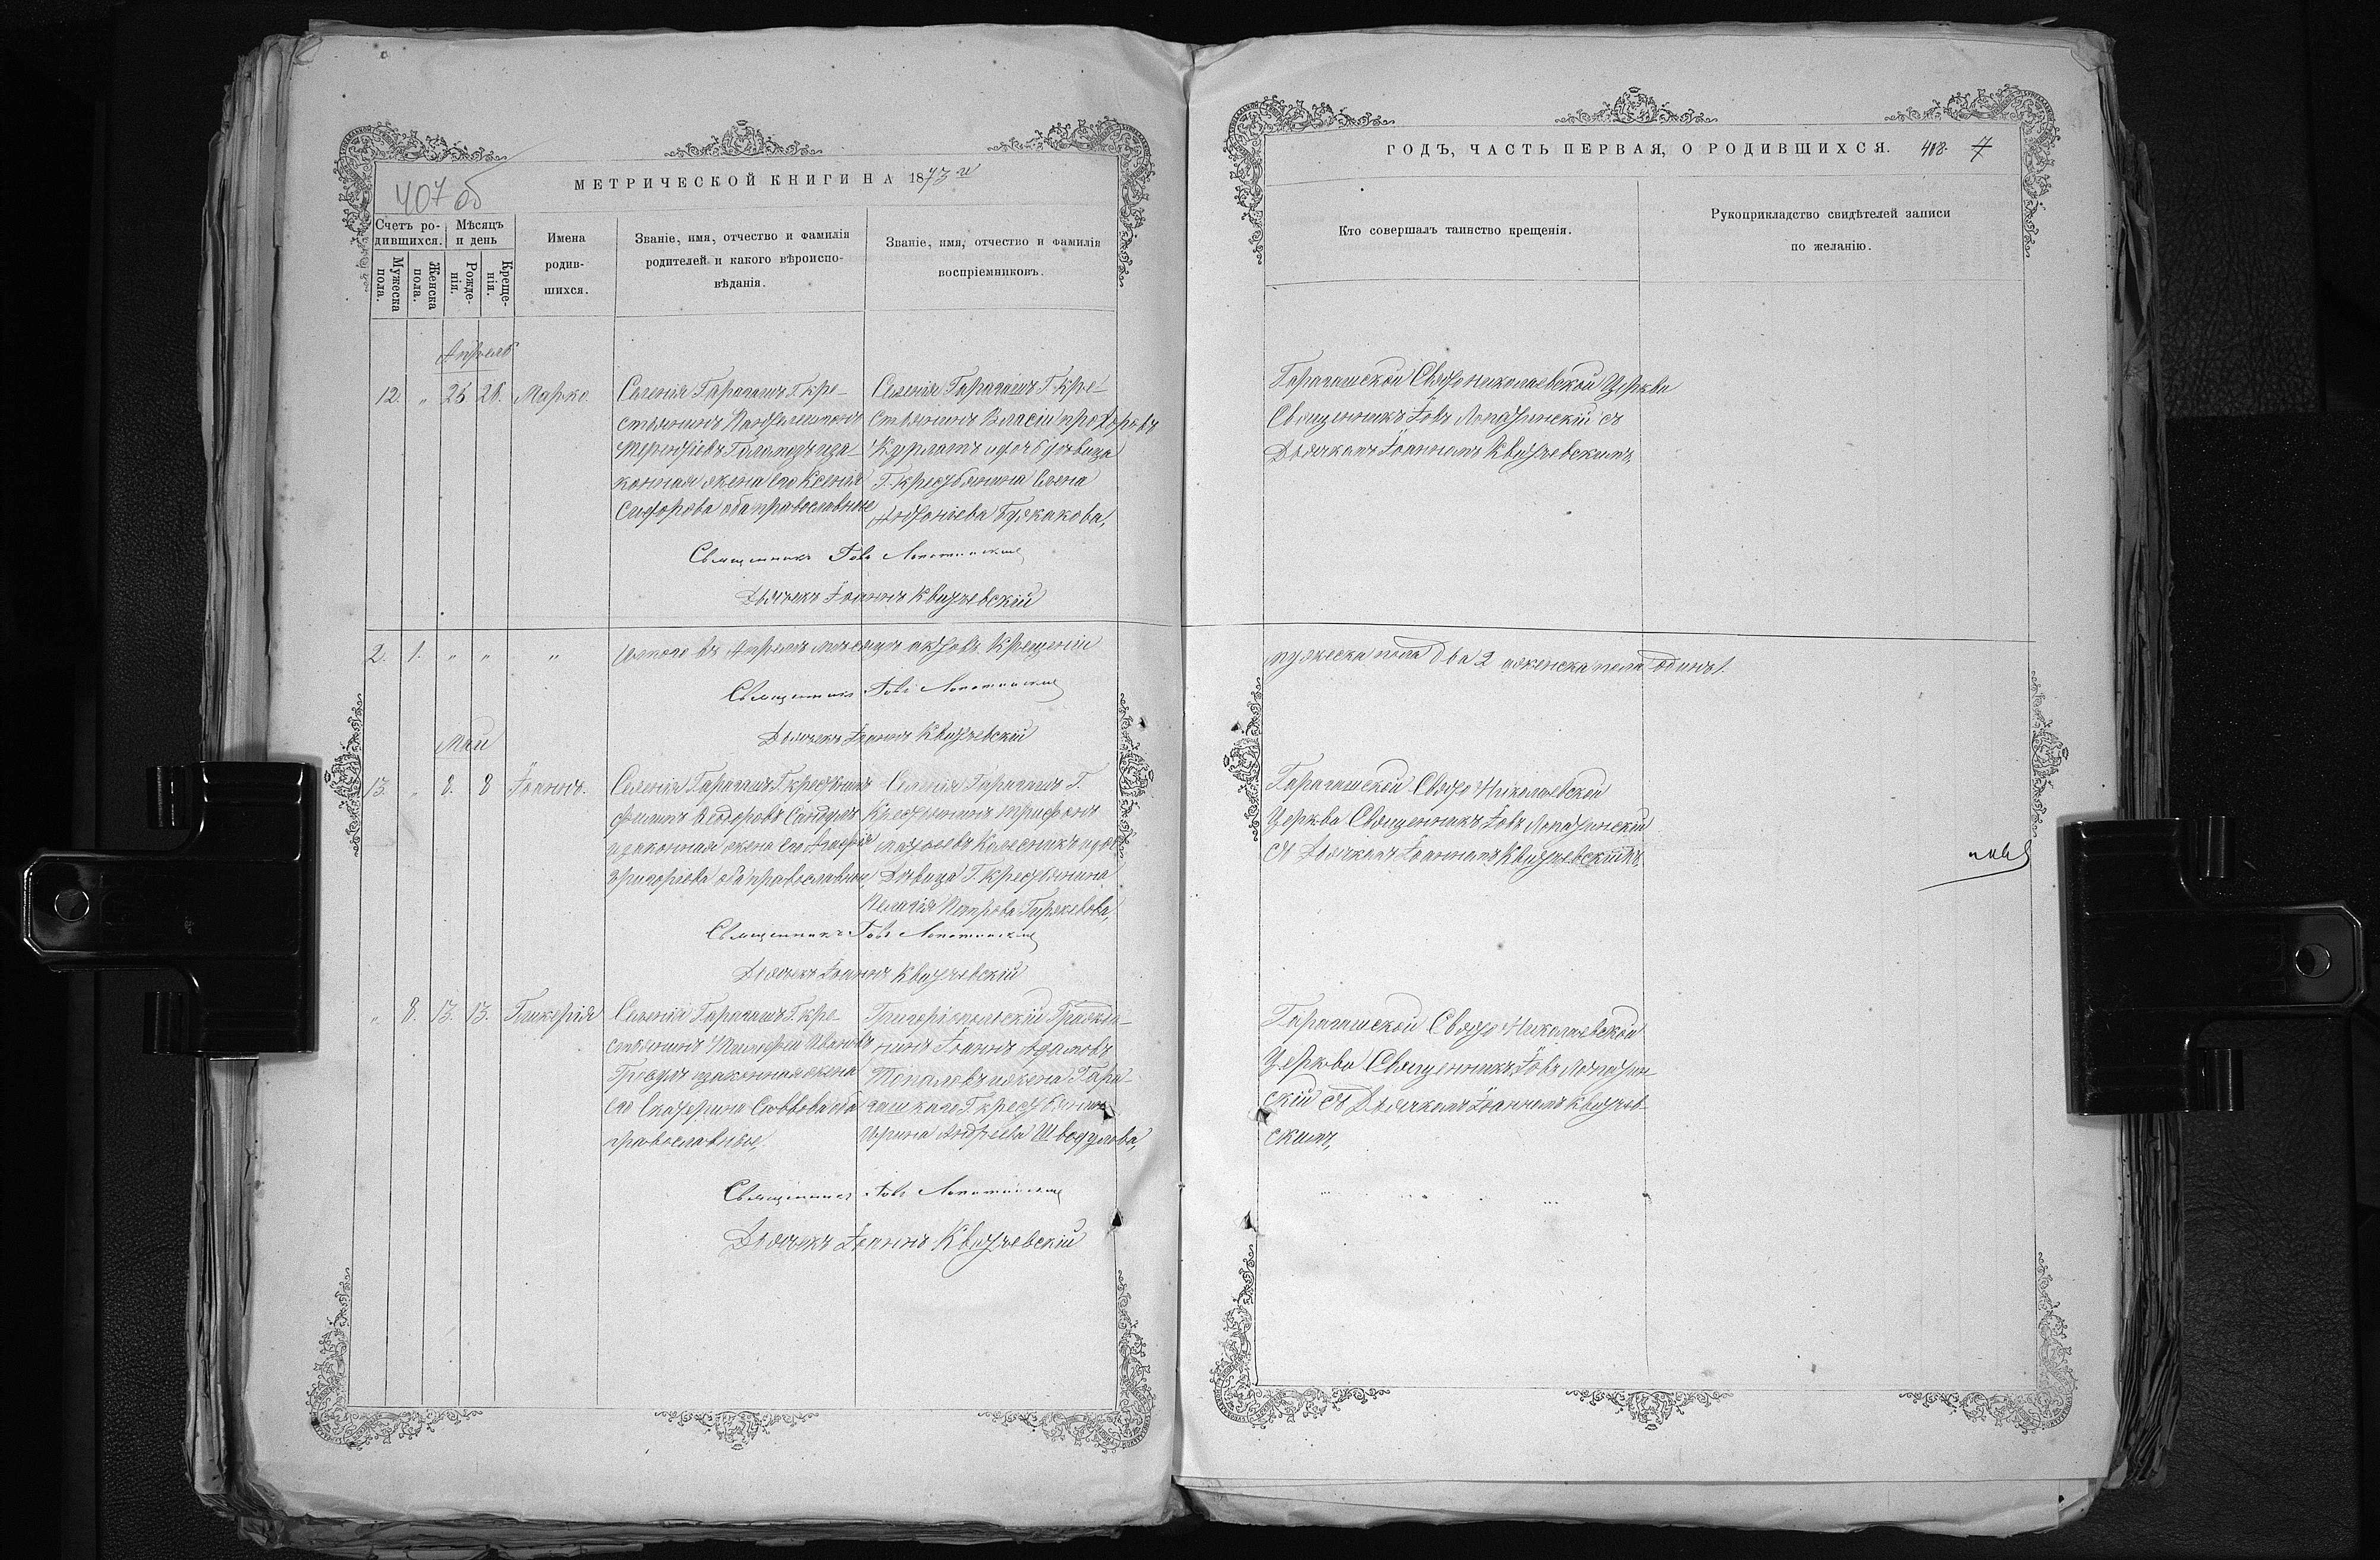 407 об
МЕТРИЧЕСКОЙ КНИГИ НА 1873 й
Счетъ родившихся.
Мѣсяцъ и день
Мужеска пола.
Женска пола.
Рожденія.
Крещенія.
Имена родившихся.
Званіе, имя, отчество и фамилія родителей и какого вѣроисповѣданія.
Званіе, имя, отчество и фамилія воспріемниковъ.
Апрель
12. " 25 26. Марко.
Селенія Гарагашъ Г. кре-
стьянинъ Пантелеимонъ
Терентіевъ и за-
конная жена его Ксенія
Сидорова оба православные
Селенія Гарагашъ Г. кре-
стьянинъ Власій Прохоровъ
и дѣвица
Г. крестьянина Елена
Антоніева
Священникъ Іовъ Лопатинскій
Дьячекъ Іоаннъ Квятчевскій
2. 1. " " "
Итого въ Апрелѣ мѣсяцѣ актовъ Крещеніи
Священникъ Іовъ Лопатинскій
Дьячекъ Іоаннъ Квятчевскій
Май
13. " 8. 8 Іоаннъ.
Селенія Гарагашъ Г. крестьянинъ
Филипъ Ѳедоровъ
и законная жена его
Григоріева оба православныи,
Селенія Гарагашъ Г.
Крестьянинъ Трифонъ
Колесникъ и
Дѣвица Г. крестьянина
Пелагія Петрова
Священникъ Іовъ Лопатинскій
Дьячекъ Іоаннъ Квятчевскій
" 8. 13. 13. Гликерія
Селенія Гарагашъ Г. кре-
стьянинъ Тимофей Ивановъ
и законная жена
его Екатерина Саввова оба
православные,
Григоріопольскій Гражда-
нинъ Іоаннъ Адамовъ
Топаловъ и жена Гара-
гашскаго Г. крестьянина
Ирина Андреева
Священникъ Іовъ Лопатинскій
Дьячекъ Іоаннъ Квятчевскій
ГОДЪ, ЧАСТЬ ПЕРВАЯ, О РОДИВШИХСЯ. 408. 7
Кто совершалъ таинство крещенія.
Рукоприкладство свидѣтелей записи по желанію.
Гарагашской Свято Николаевской Церкви
Священникъ Іовъ Лопатинскій съ
Дьячкомъ Іоанномъ Квятчевскимъ,
мужеска пола два 2 и женска пола одинъ 1.
Гарагашской Свято Николаевской
Церкви Священникъ Іовъ Лопатинскій
съ Дьячкомъ Іоанномъ Квятчевскимъ,
Гарагашской Свято Николаевской
Церкви Священникъ Іовъ Лопатин-
скій съ Дьячкомъ Іоанномъ Квятчев-
скимъ,